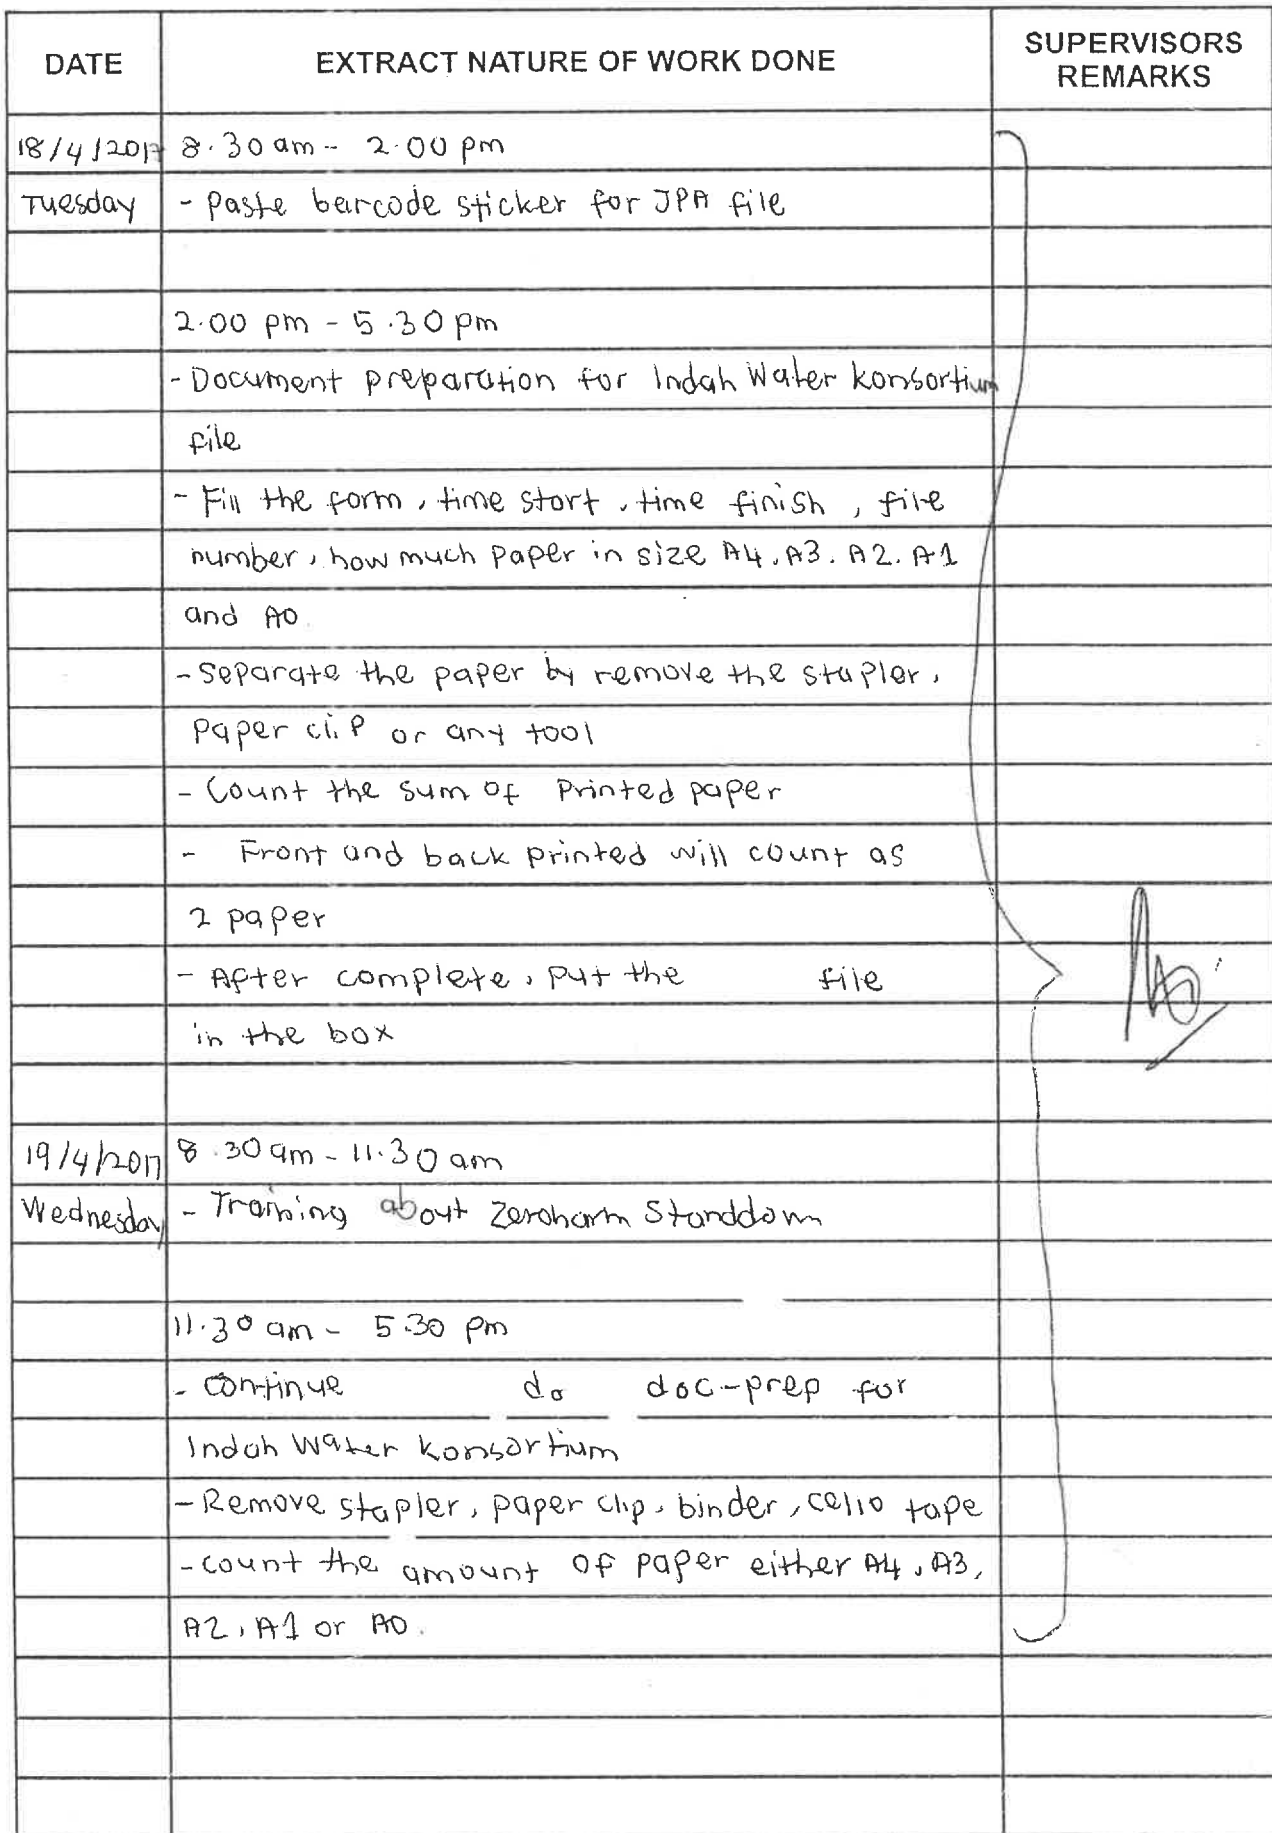 DATE EXTRACT NATURE OF WORK DONE SUPERVISORS REMARKS
18/4/2017 8.30 am - 2.00 pm
Tuesday - Paste barcode sticker for JPA file
2.00 pm - 5.30 pm
- Document preparation for Indah Water Konsortium
file
- Fill the form, time start, time finish, file
number, how much paper in size A4, A3, A2, A1
and A0
- Separate the paper by remove the stapler,
paper clip or any tool
- Count the sum of printed paper
- Front and back printed will count as
2 paper
- After complete, put the file
in the box
19/4/2017 8.30 am - 11.30 am
Wednesday - Training about Zeroharm Standdown
11.30 am - 5.30 pm
- Continue do doc-prep for
Indah Water Konsortium
- Remove stapler, paper clip, binder, cello tape
- Count the amount of paper either A4, A3,
A2, A1 or A0.